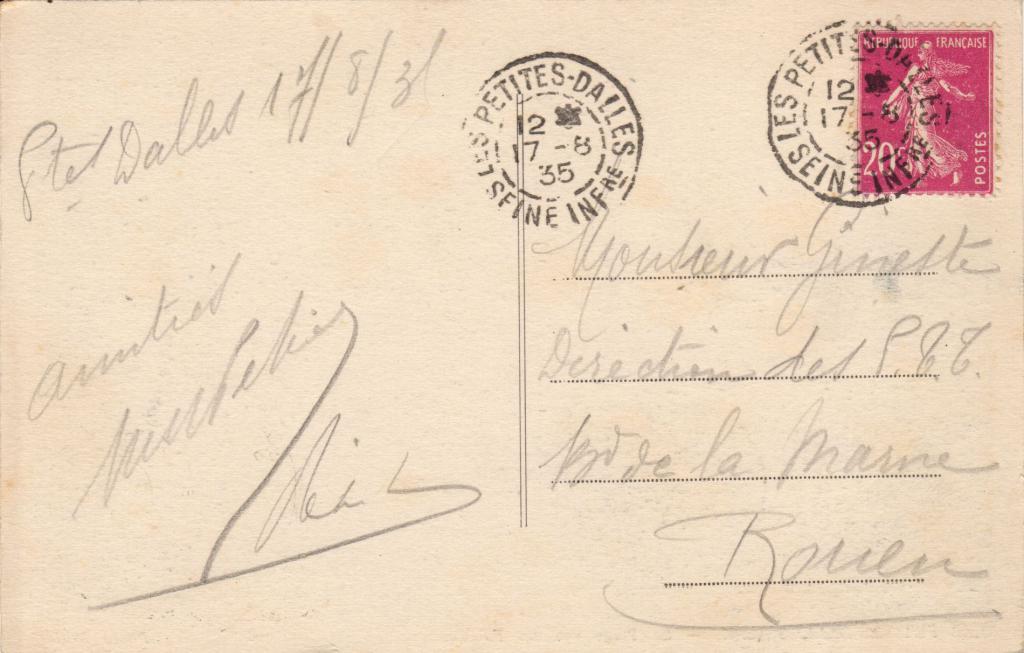 Ptes Dalles 17/8/35
amitiés
LES PETITES-DALLES
12
17-8
35
SEINE INFRE
LES PETITES-DALLES
12
17-8
35
SEINE INFRE
RÉPUBLIQUE FRANÇAISE
20c
POSTES
Monsieur Ginette
Diréction des P.T.T.
Bd de la Marne
Rouen